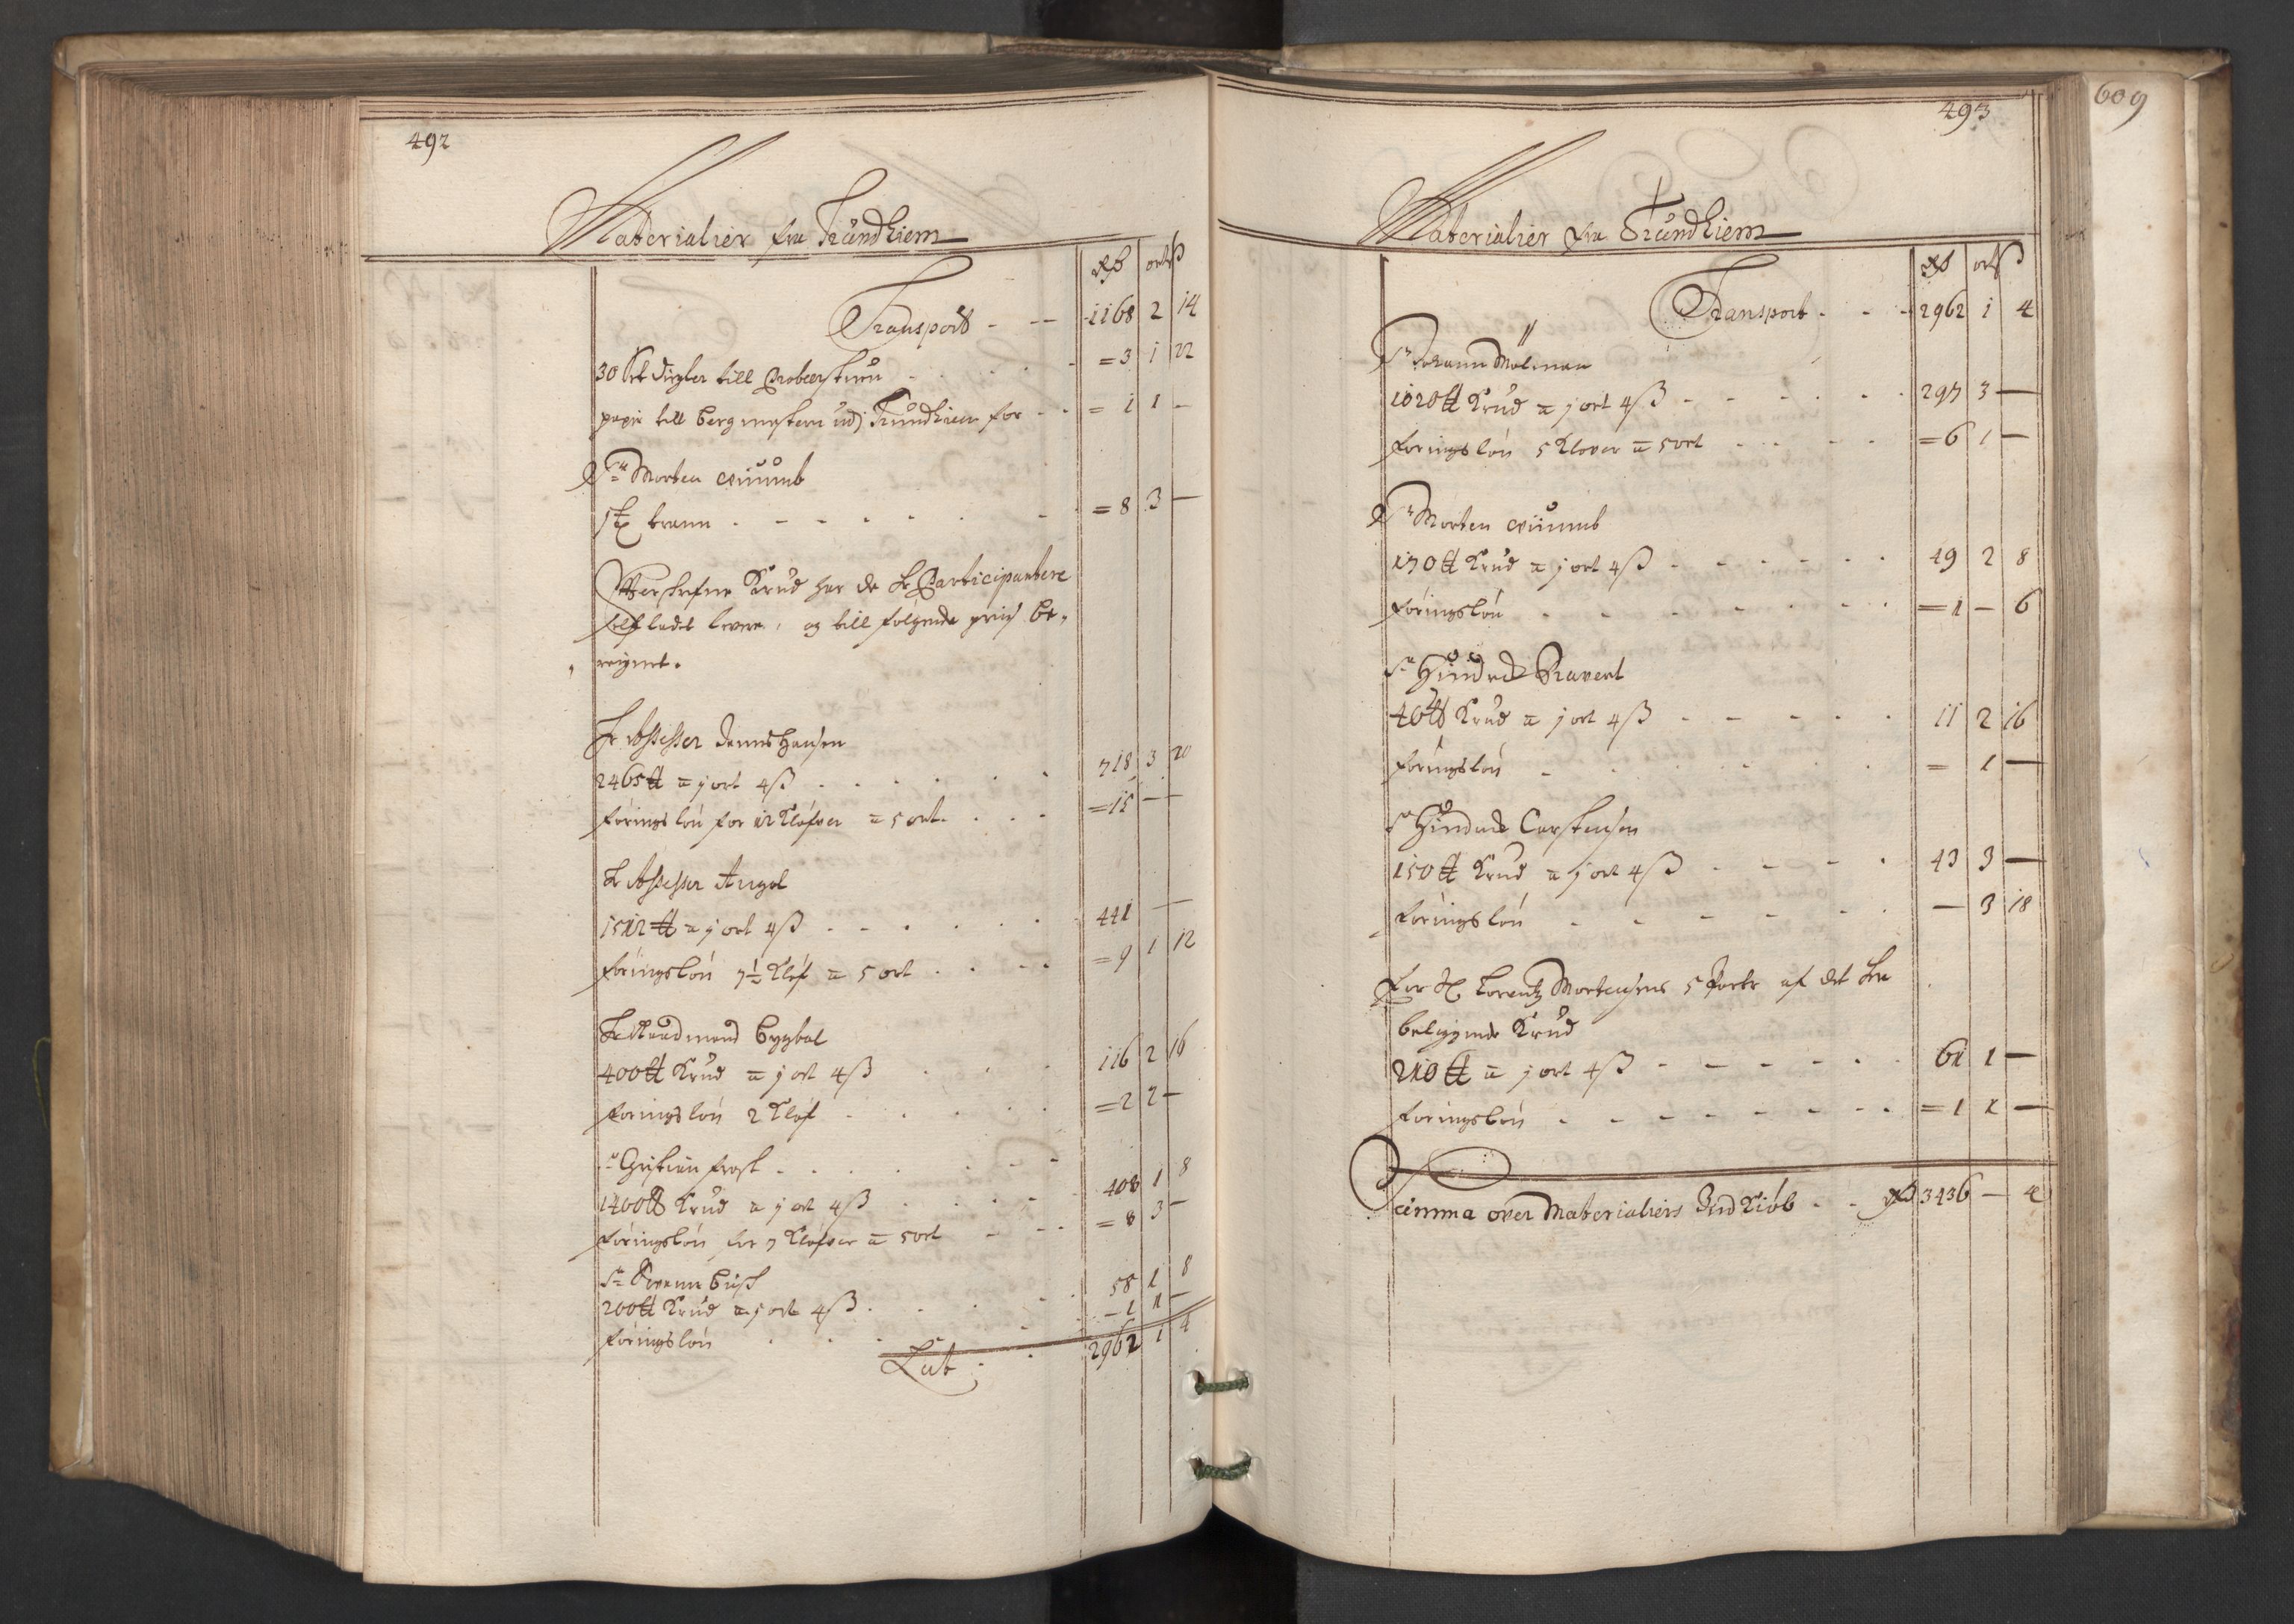 492
Materialier fra Trundhiem
rdr ort ß
Transport - -- 1168 2 14
30 stk digler till Proberstuen - = 3 1 22
papir till bergmesteren udj Trundhiem for - = 1 1 -
Sr Morten
brann - - - - - = 8 3 -
Krud har de Hr Participantere
self ladet levere, og till følgende priis be,
reignet.
Hr Assessor Hansen
2465 ℔ a j ort 4 ß - - - 718 3 20
føringsløn for 12 Kløfver a 5 ort - - = 15 - -
Hr Assessor Angel
1512 ℔ a j ort 4 ß - - - 441 - -
føringsløn 7½ Kløf a 5 ort - - = 9 1 12
Hr Raadmand Bygbal
400 ℔ Krud a j ort 4 ß - - 116 2 16
føringsløn 2 Kløf - - - = 2 2 -
Sr Christian frost - - - -
1400 ℔ Krud a j ort 4 ß - - - 408 1 8
føringsløn for 7 Kløfver a 5 ort - - = 8 3 -
Sr Busch
200 ℔ Krud a j ort 4 ß - - - 58 1 8
føringsløn - - - - 1 1 -
Lat - - 2962 1 4
493
Materialier fra Trundhiem
rdr ort ß
Transport - - - 2962 1 4
Sr Johann Molman
1020 ℔ Krud a j ort 4 ß - - - - 297 3 -
føringsløn 5 Klover a 5 ort - - - = 6 1 -
Sr Morten
170 ℔ Krud a j ort 4 ß - - - - 49 2 8
føringsløn - - - - - = 1 - 6
Sr Hindrick Pravert
40 ℔ Krud a j ort 4 ß - - - - 11 2 16
føringsløn - - - - = 1 -
Sr Hindrick Carstensen
150 ℔ Krud a j ort 4 ß - - - 43 3 -
føringsløn - - - - - - 3 18
For Lorentz Mortensens 5 Parter af det her
beliggende Krud
210 ℔ a j ort 4 ß - - - - 61 1 -
føringsløn - - - - - - = 1 1 -
Summa over Materialiers Ind Kiøb - - rdr 3436 - 4
609